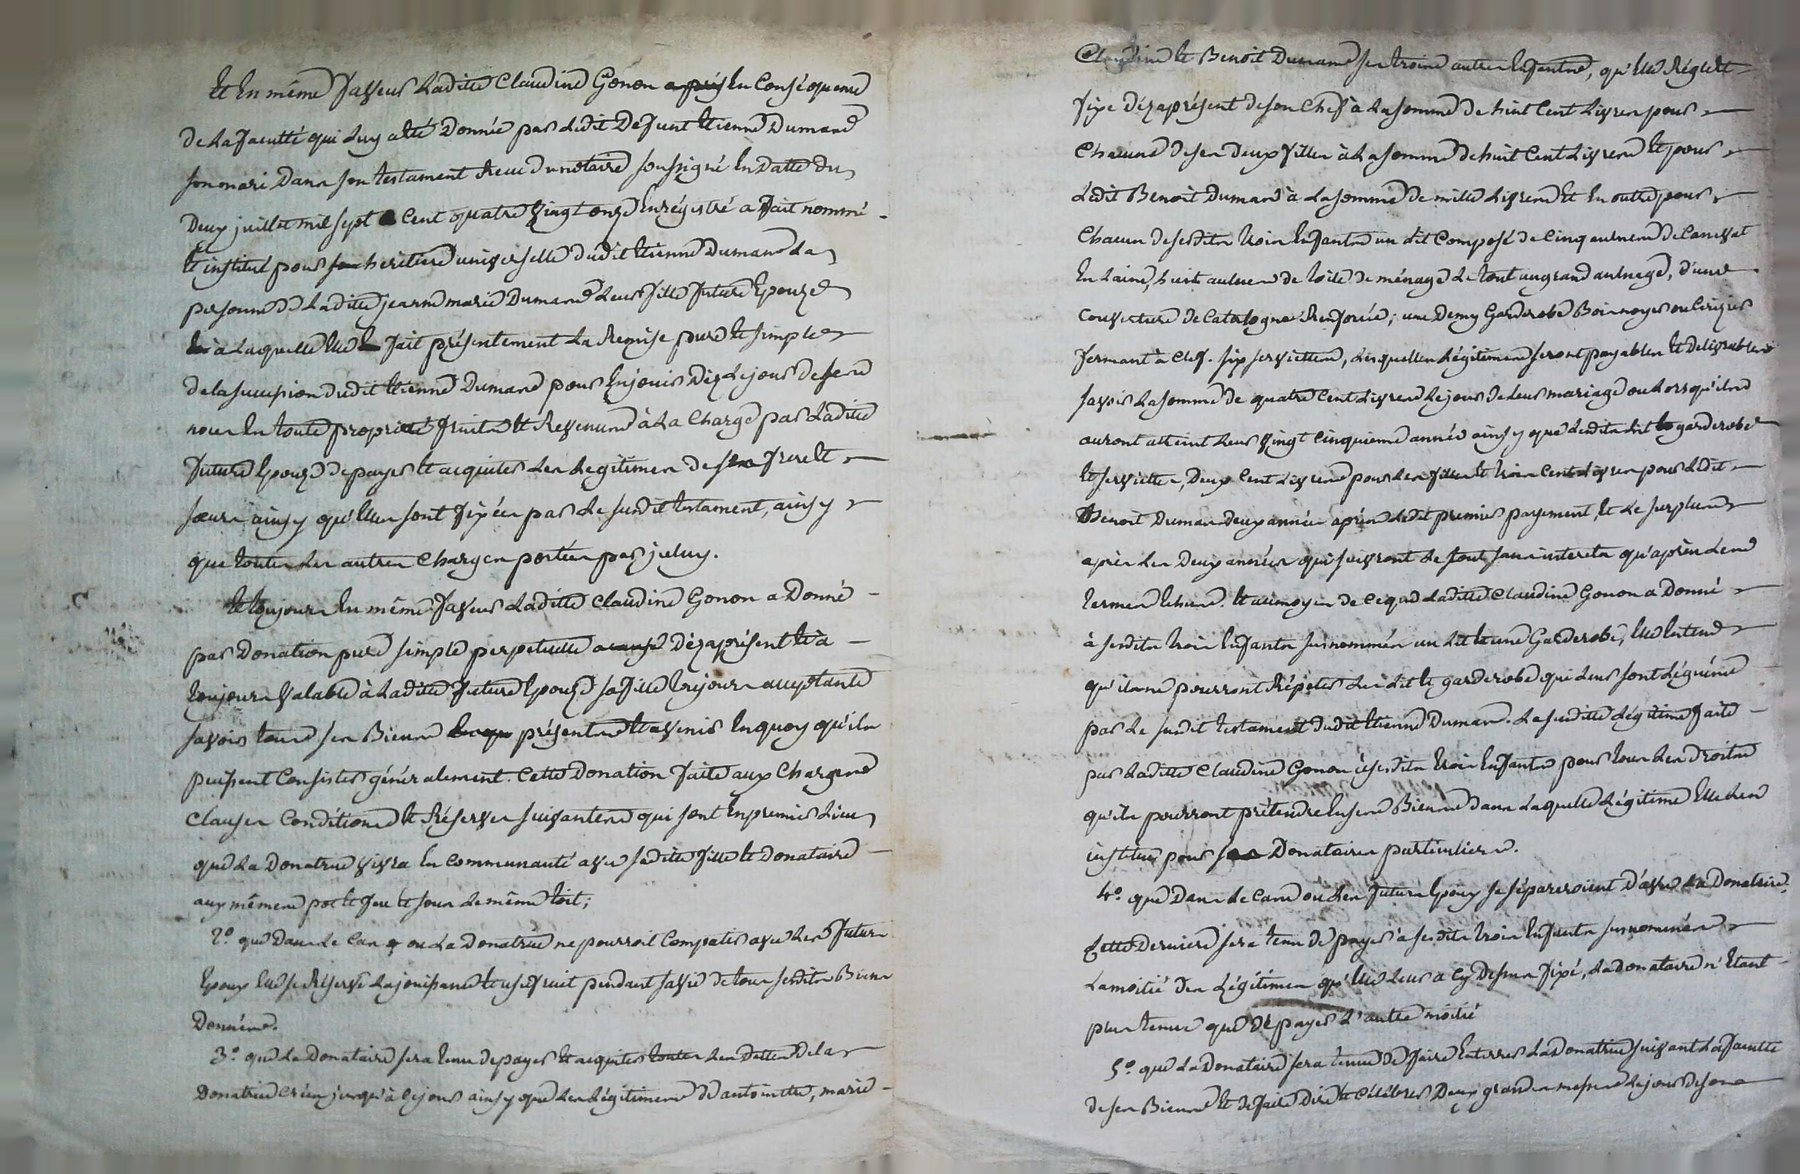 Et En même faveur Laditte Claudine Gonon En Conséquence
de La faculté qui Luy a Eté Donnée par Ledit Defunt Etienne Dumand
son mari Dans son testament Recu du notaire soussigné En Datte du
Deux juillet mil sept Cent quatre vingt onze Enrégistré a fait nommé
Et institué pour heritiere universelle dudit Etienne Dumand La
personne de Laditte jeanne marie Dumand Leur fille future Epouze
à Laquelle Elle fait présentement La Remise pure Et simple
de la succession dudit Etienne Dumand pour En jouir Dez Le jour de ses
noces En toute propriété fruits Et Revenus à La Charge par Laditte
future Epouze de payer Et acquiter Les Legitimes de ses frere Et
soeurs ainsy qu'Elles sont fixées par Le susdit testament, ainsy
que toutes Les autres Charges portées par jceluy.
Et toujours En même faveur Laditte Claudine Gonon a Donné
par Donation pure simple perpetuelle Dèzaprésent Et à
toujours valable à Laditte future Epouze sa fille toujours acceptante
savoir tous ses Biens présents Et avenir En quoy qu'ils
puissent Consister généralement. Cette Donation faite aux Charges
Clauses Conditions Et Réserves suivantes qui sont En premier Lieu
que La Donatrice vivra En Communauté avec saditte fille Et Donataire
aux mêmes pot Et feu Et sous Le même toit;
2.° que Dans Le Cas ou La Donatrice ne pourroit Compatir avec Les futurs
Epoux Elle se Réserve La jouissance Et usufruit pendant sa vie de tous sesdits Biens
Donnés.
3.° que La Donataire sera tenue de payer Et acquiter toutes Les Dettes De la
Donatrice Créées jusqu'à Ce jour ainsy que Les Légitimes D'antoinette, marie
Claudine Et Benoit Dumand ses trois autres Enfants, qu'Elle Régle Et
fixe Dèzaprésent de son Chef à La somme de huit Cent Livres pour
Chacune de ses Deux filles à La somme de huit Cent Livres Et pour
Ledit Benoit Dumand à La somme de mille Livres Et En outre pour
Chacun de sesdits trois Enfants un Lit Composé de Cinq aulnes de Canevat
En Laine, huit aulnes de toile de ménage Le tout au grand aulnage, d'une
Couverture de Catalogne Renforcée; une Demy Garderobe Bois noyer ou Cerizier
fermant à Clef. six serviettes, Lesquelles Légitimes seront payables Et Delivrables
savoir La somme de quatre Cent Livres Le jour de Leur mariage ou Lorsqu'ils
auront atteint Leur vingt Cinquieme année ainsy que Lesdits Lit garderobe
Et serviettes, Deux Cent Livres pour Les filles Et trois Cent Livres pour Ledit
Benoit Dumand deux années après Ledit premier payement, Et Le surplus
après Les Deux années qui suivront Le tout sans interets qu'après Les
termes Echus. Et au moyen de Ce que Laditte Claudine Gonon a Donné
à sesdits trois Enfants susnommés un Lit Et une Garderobe, Elle Entend
qu'ils ne pourront Répeter Les Lit Et garderobe qui Leur sont Légués
par Le susdit testament dudit Etienne Dumand. La susditte Légitime faite
par Laditte Claudine Gonon à sesdits trois Enfants pour tous Les Droits
qu'ils pourront prétendre En ses Biens Dans Laquelle Légitime Elle Les
institue pour Donataires particuliers.
4.° que Dans Le Cas ou Les futurs Epoux se sépareroient D'avec La Donatrice,
Cette Derniere sera tenue De payer à sesdits trois Enfants susnommés
La moitié Des Légitimes qu'Elle Leur a Cy Dessus fixé, La Donataire n'Etant
plus tenue que De payer L'autre moitié
5.° que La Donataire sera tenue De faire Enterrer La Donatrice suivant La faculté
de ses Biens Et de faire Dire Et Célébrer Deux grandes messes Le jour de son